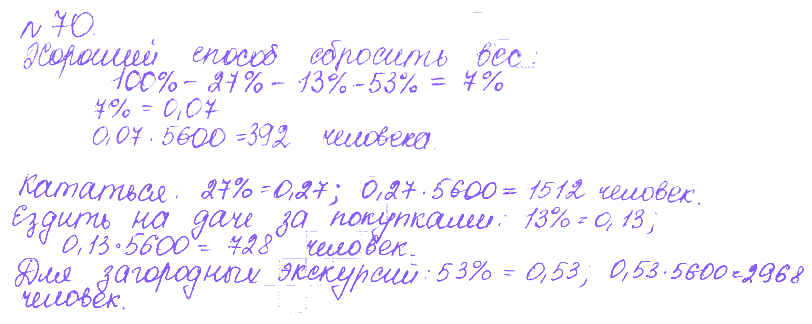 № 70.
Хороший способ сбросить вес:
100% - 27% - 13% - 53% = 7%
7% = 0,07
0,07 · 5600 = 392 человека.
Кататься. 27% = 0,27; 0,27 · 5600 = 1512 человек.
Ездить на даче за покупками: 13% = 0,13;
0,13 · 5600 = 728 человек.
Для загородных экскурсий: 53% = 0,53; 0,53 · 5600 = 2968
человек.